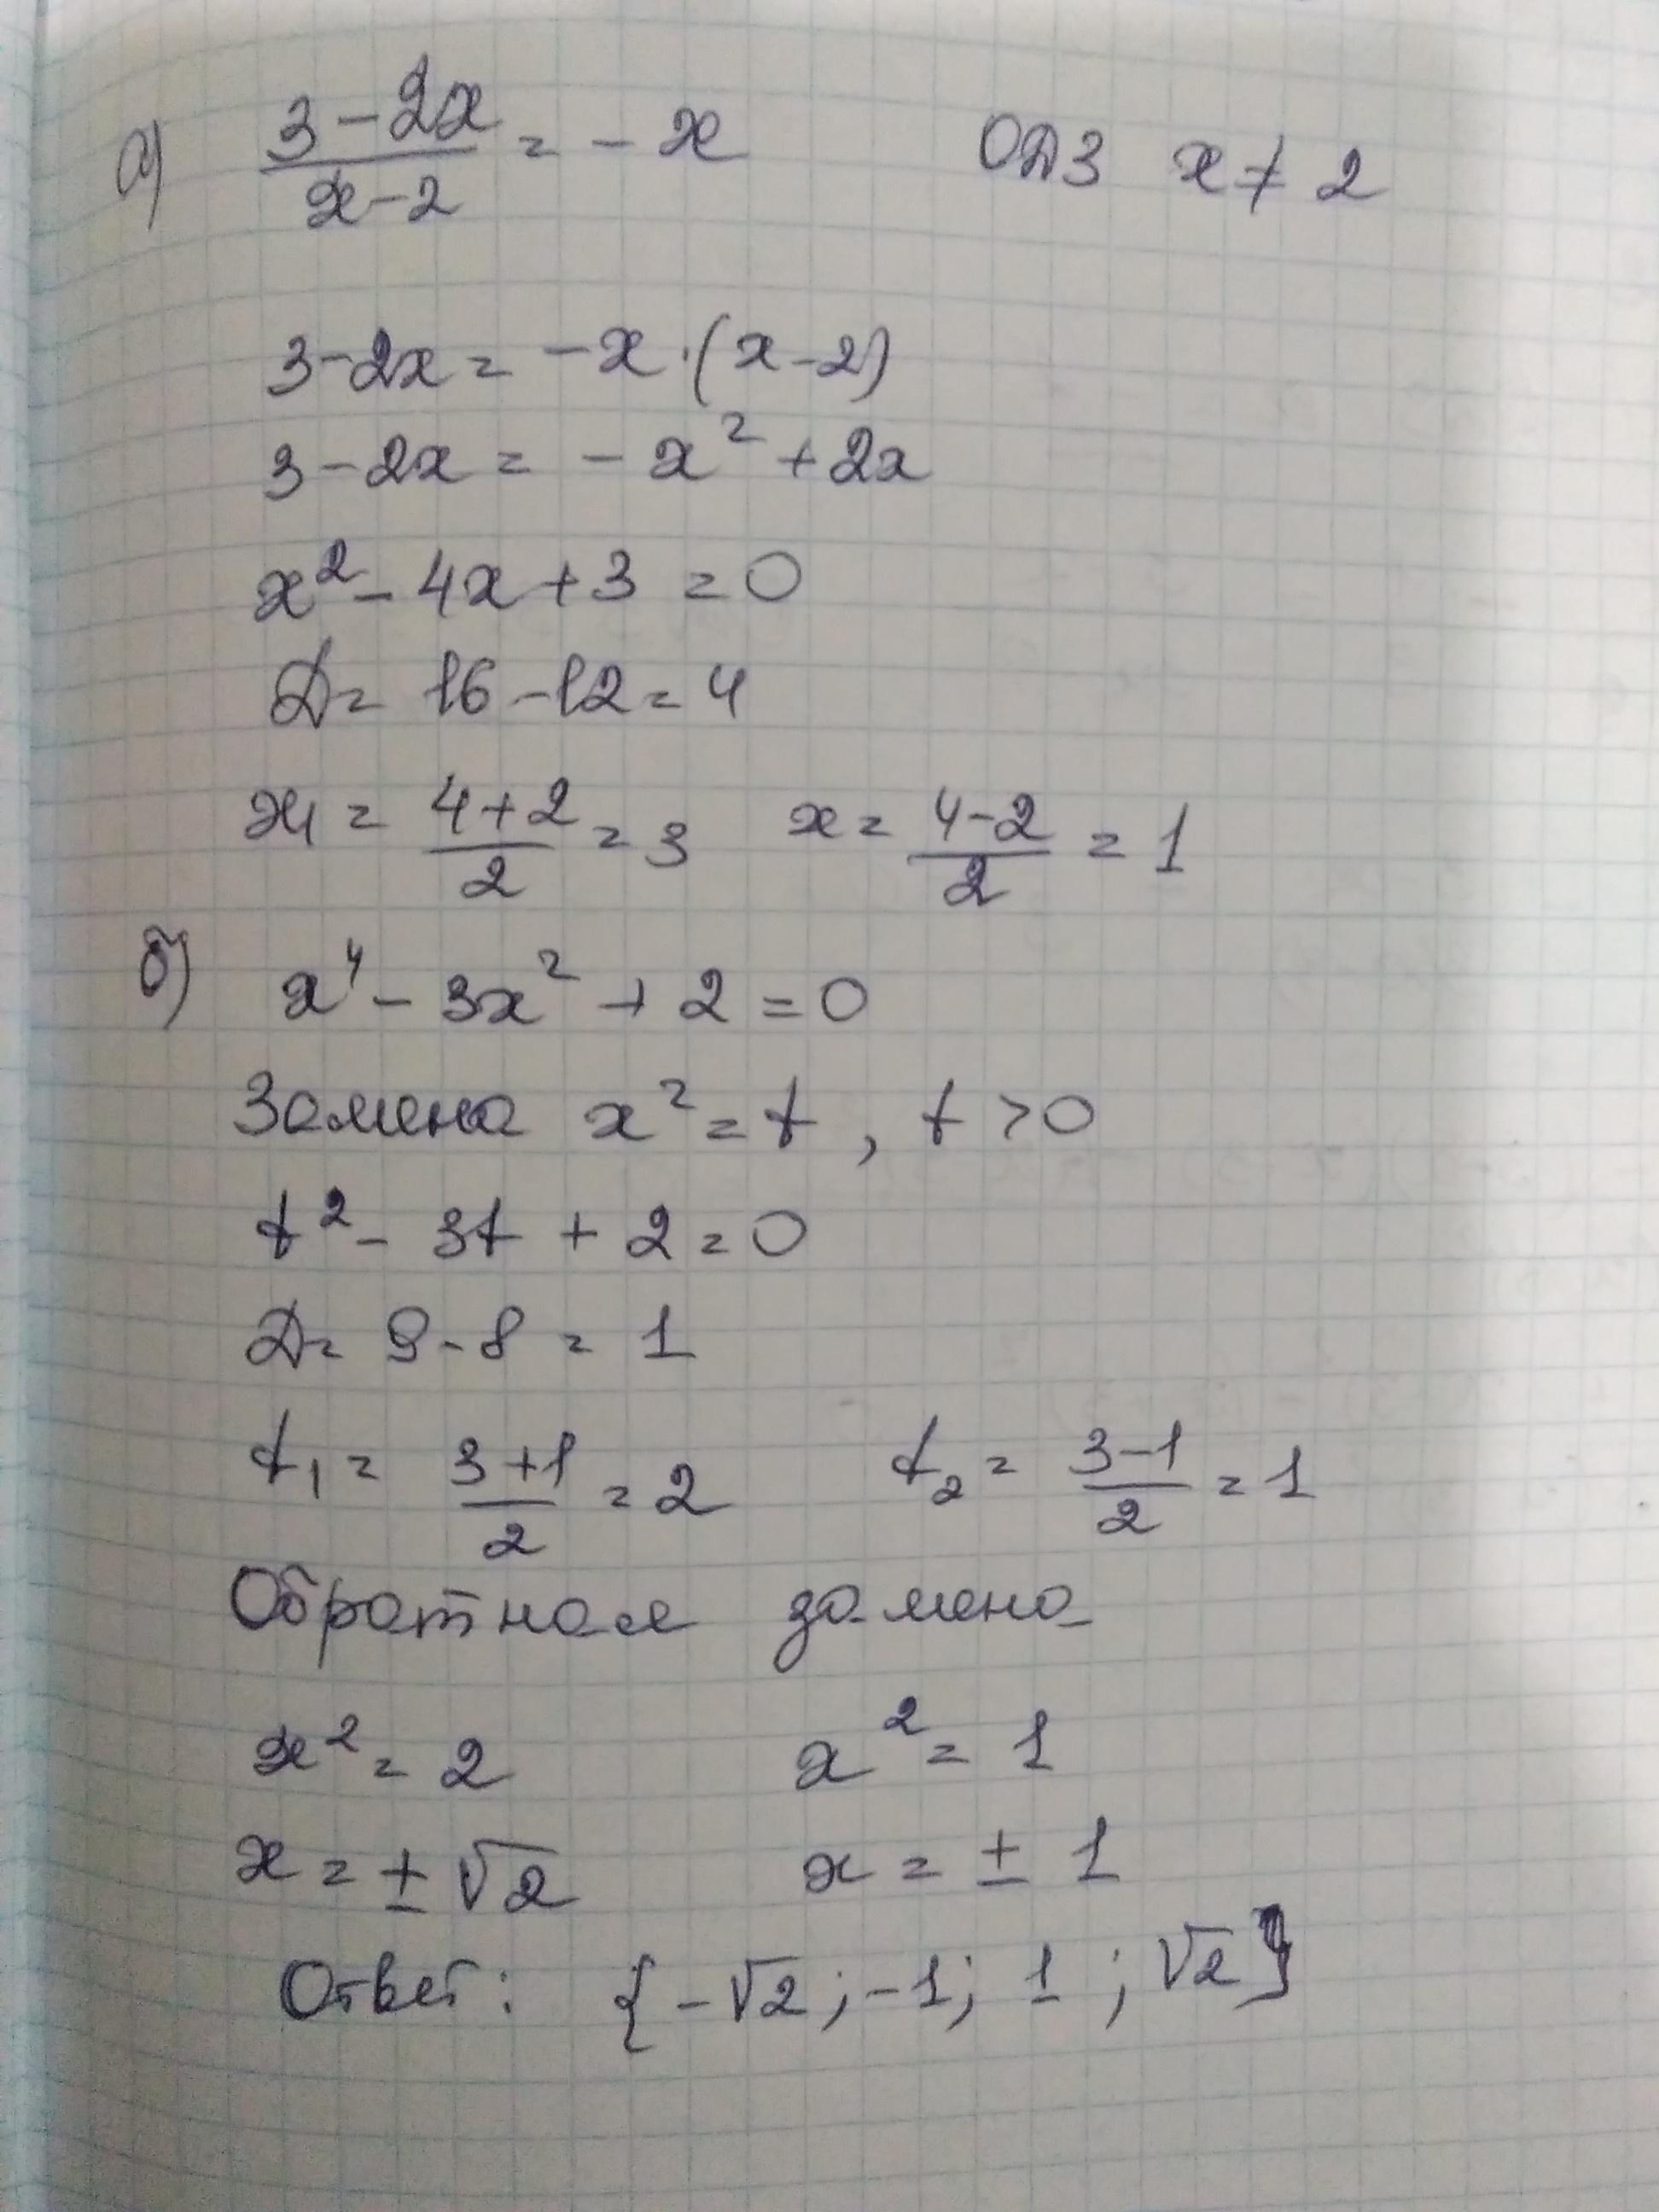 а) (3-2x)/(x-2) = -x ОДЗ x ≠ 2
3-2x = -x·(x-2)
3-2x = -x² + 2x
x² - 4x + 3 = 0
D = 16 - 12 = 4
x₁ = (4+2)/2 = 3 x = (4-2)/2 = 1
б) x⁴ - 3x² + 2 = 0
Замена x² = t, t > 0
t² - 3t + 2 = 0
D = 9 - 8 = 1
t₁ = (3+1)/2 = 2 t₂ = (3-1)/2 = 1
Обратная замена
x² = 2 x² = 1
x = ±√2 x = ± 1
Ответ: {-√2; -1; 1; √2}